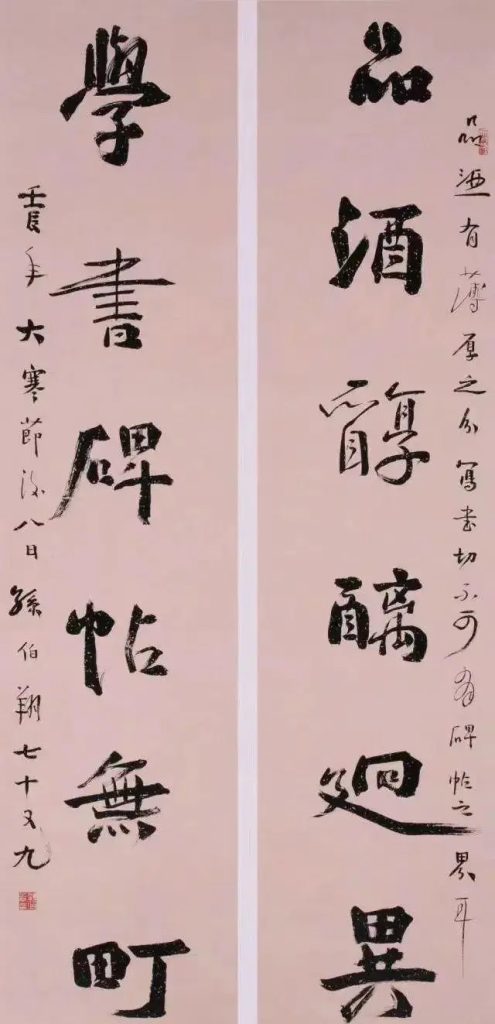 品酒有薄厚之分寫書切不可有碑帖之界耳
品酒醇醨迴異
學書碑帖無町
壬辰年大寒節後八日孫伯翔七十又九